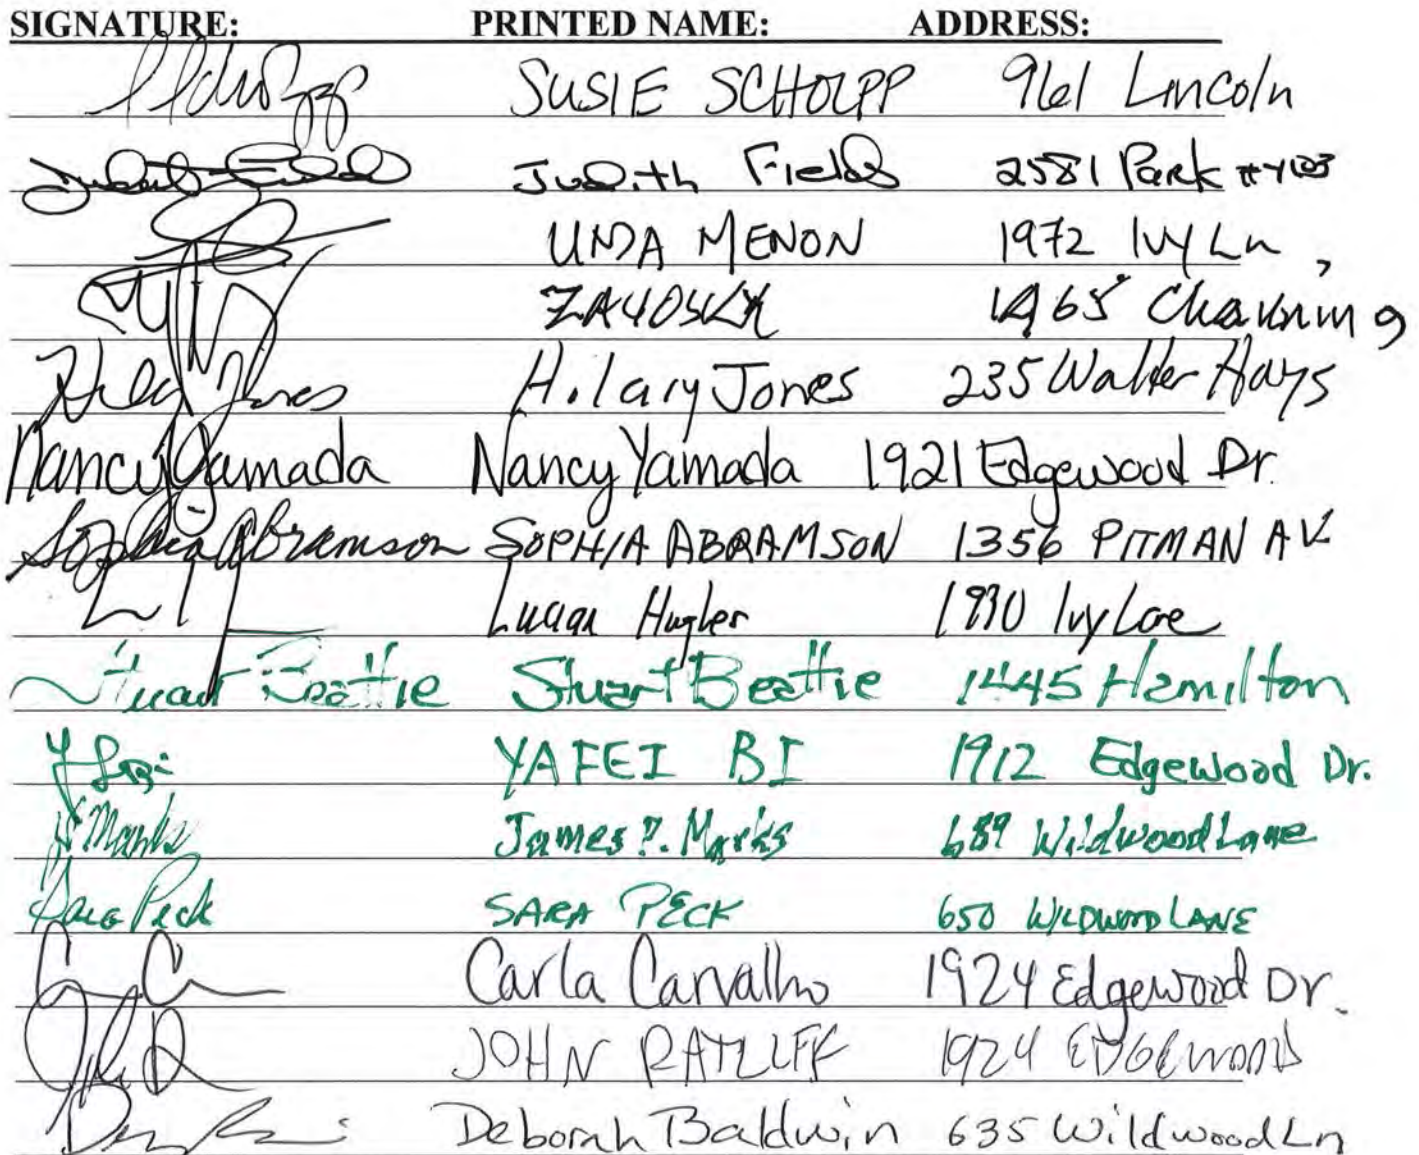 SIGNATURE: PRINTED NAME: ADDRESS:
SUSIE SCHOLPP 961 Lincoln
Judith Fields 2581 Park
UMA MENON 1972 Ivy Ln,
1965 Channing
Hilary Jones Hilary Jones 235 Walter Hays
Nancy Yamada Nancy Yamada 1921 Edgewood Dr.
Sophia Abramson SOPHIA ABRAMSON 1356 PITMAN AV
1930 Ivy Lane
Stuart Beattie Stuart Beattie 1445 Hamilton
YAFEI BI 1912 Edgewood Dr.
Marks James P. Marks 689 Wildwood Lane
Peck SARA PECK 650 WILDWOOD LANE
Carla Carvalho 1924 Edgewood Dr.
JOHN RATLIFF 1924 EDGEWOOD
Deborah Baldwin 635 Wildwood Ln